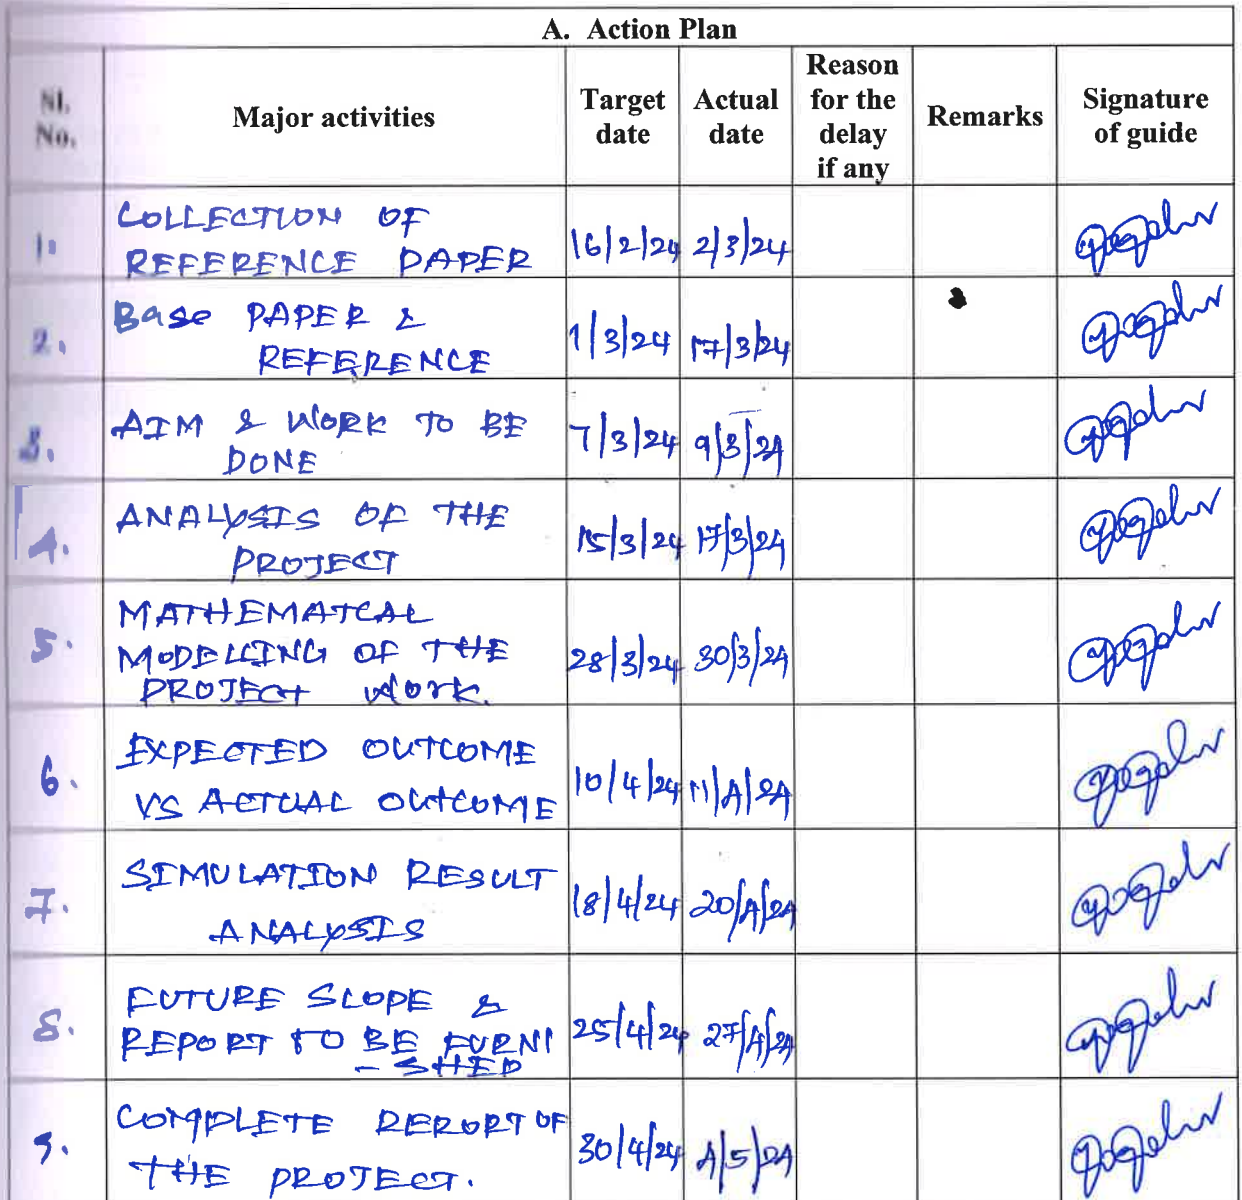 A. Action Plan
Sl. No. Major activities Target date Actual date Reason for the delay if any Remarks Signature of guide
1. COLLECTION OF
REFERENCE PAPER 16/2/24 2/3/24
2. Base PAPER &
REFERENCE 1/3/24 17/3/24
3. AIM & WORK TO BE
DONE 7/3/24 9/3/24
4. ANALYSIS OF THE
PROJECT 15/3/24 17/3/24
5. MATHEMATCAL
MODELLING OF THE
PROJECT WORK. 28/3/24 30/3/24
6. EXPECTED OUTCOME
VS ACTUAL OUTCOME 10/4/24 11/4/24
7. SIMULATION RESULT
ANALYSIS 18/4/24 20/4/24
8. FUTURE SCOPE &
REPORT TO BE FURNI
- SHED 25/4/24 27/4/24
9. COMPLETE REPORT OF
THE PROJECT. 30/4/24 4/5/24